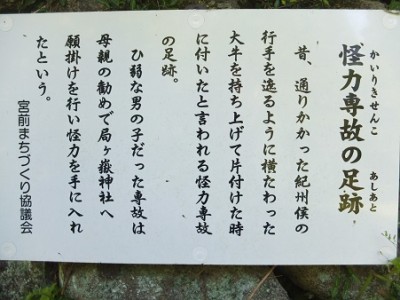 怪力専故の足跡
かいりきせんこ
あしあと
昔、通りかかった紀州候の
行手を遮るように横たわった
大牛を持ち上げて片付けた時
に付いたと言われる怪力専故
の足跡。
ひ弱な男の子だった専故は
母親の勧めで局ヶ嶽神社へ
願掛けを行い怪力を手に入れ
たという。
宮前まちづくり協議会